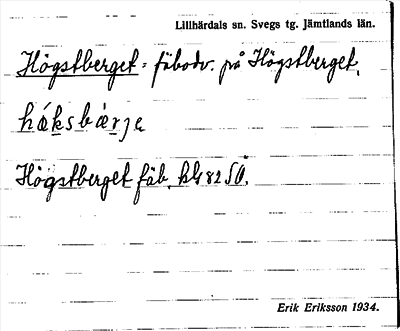 Lillhärdals sn. Svegs tg. Jämtlands län.
Högstberget = fäbodv. på Högstberget.
háksbàrje
Högstberget fäb.
Erik Eriksson 1934.